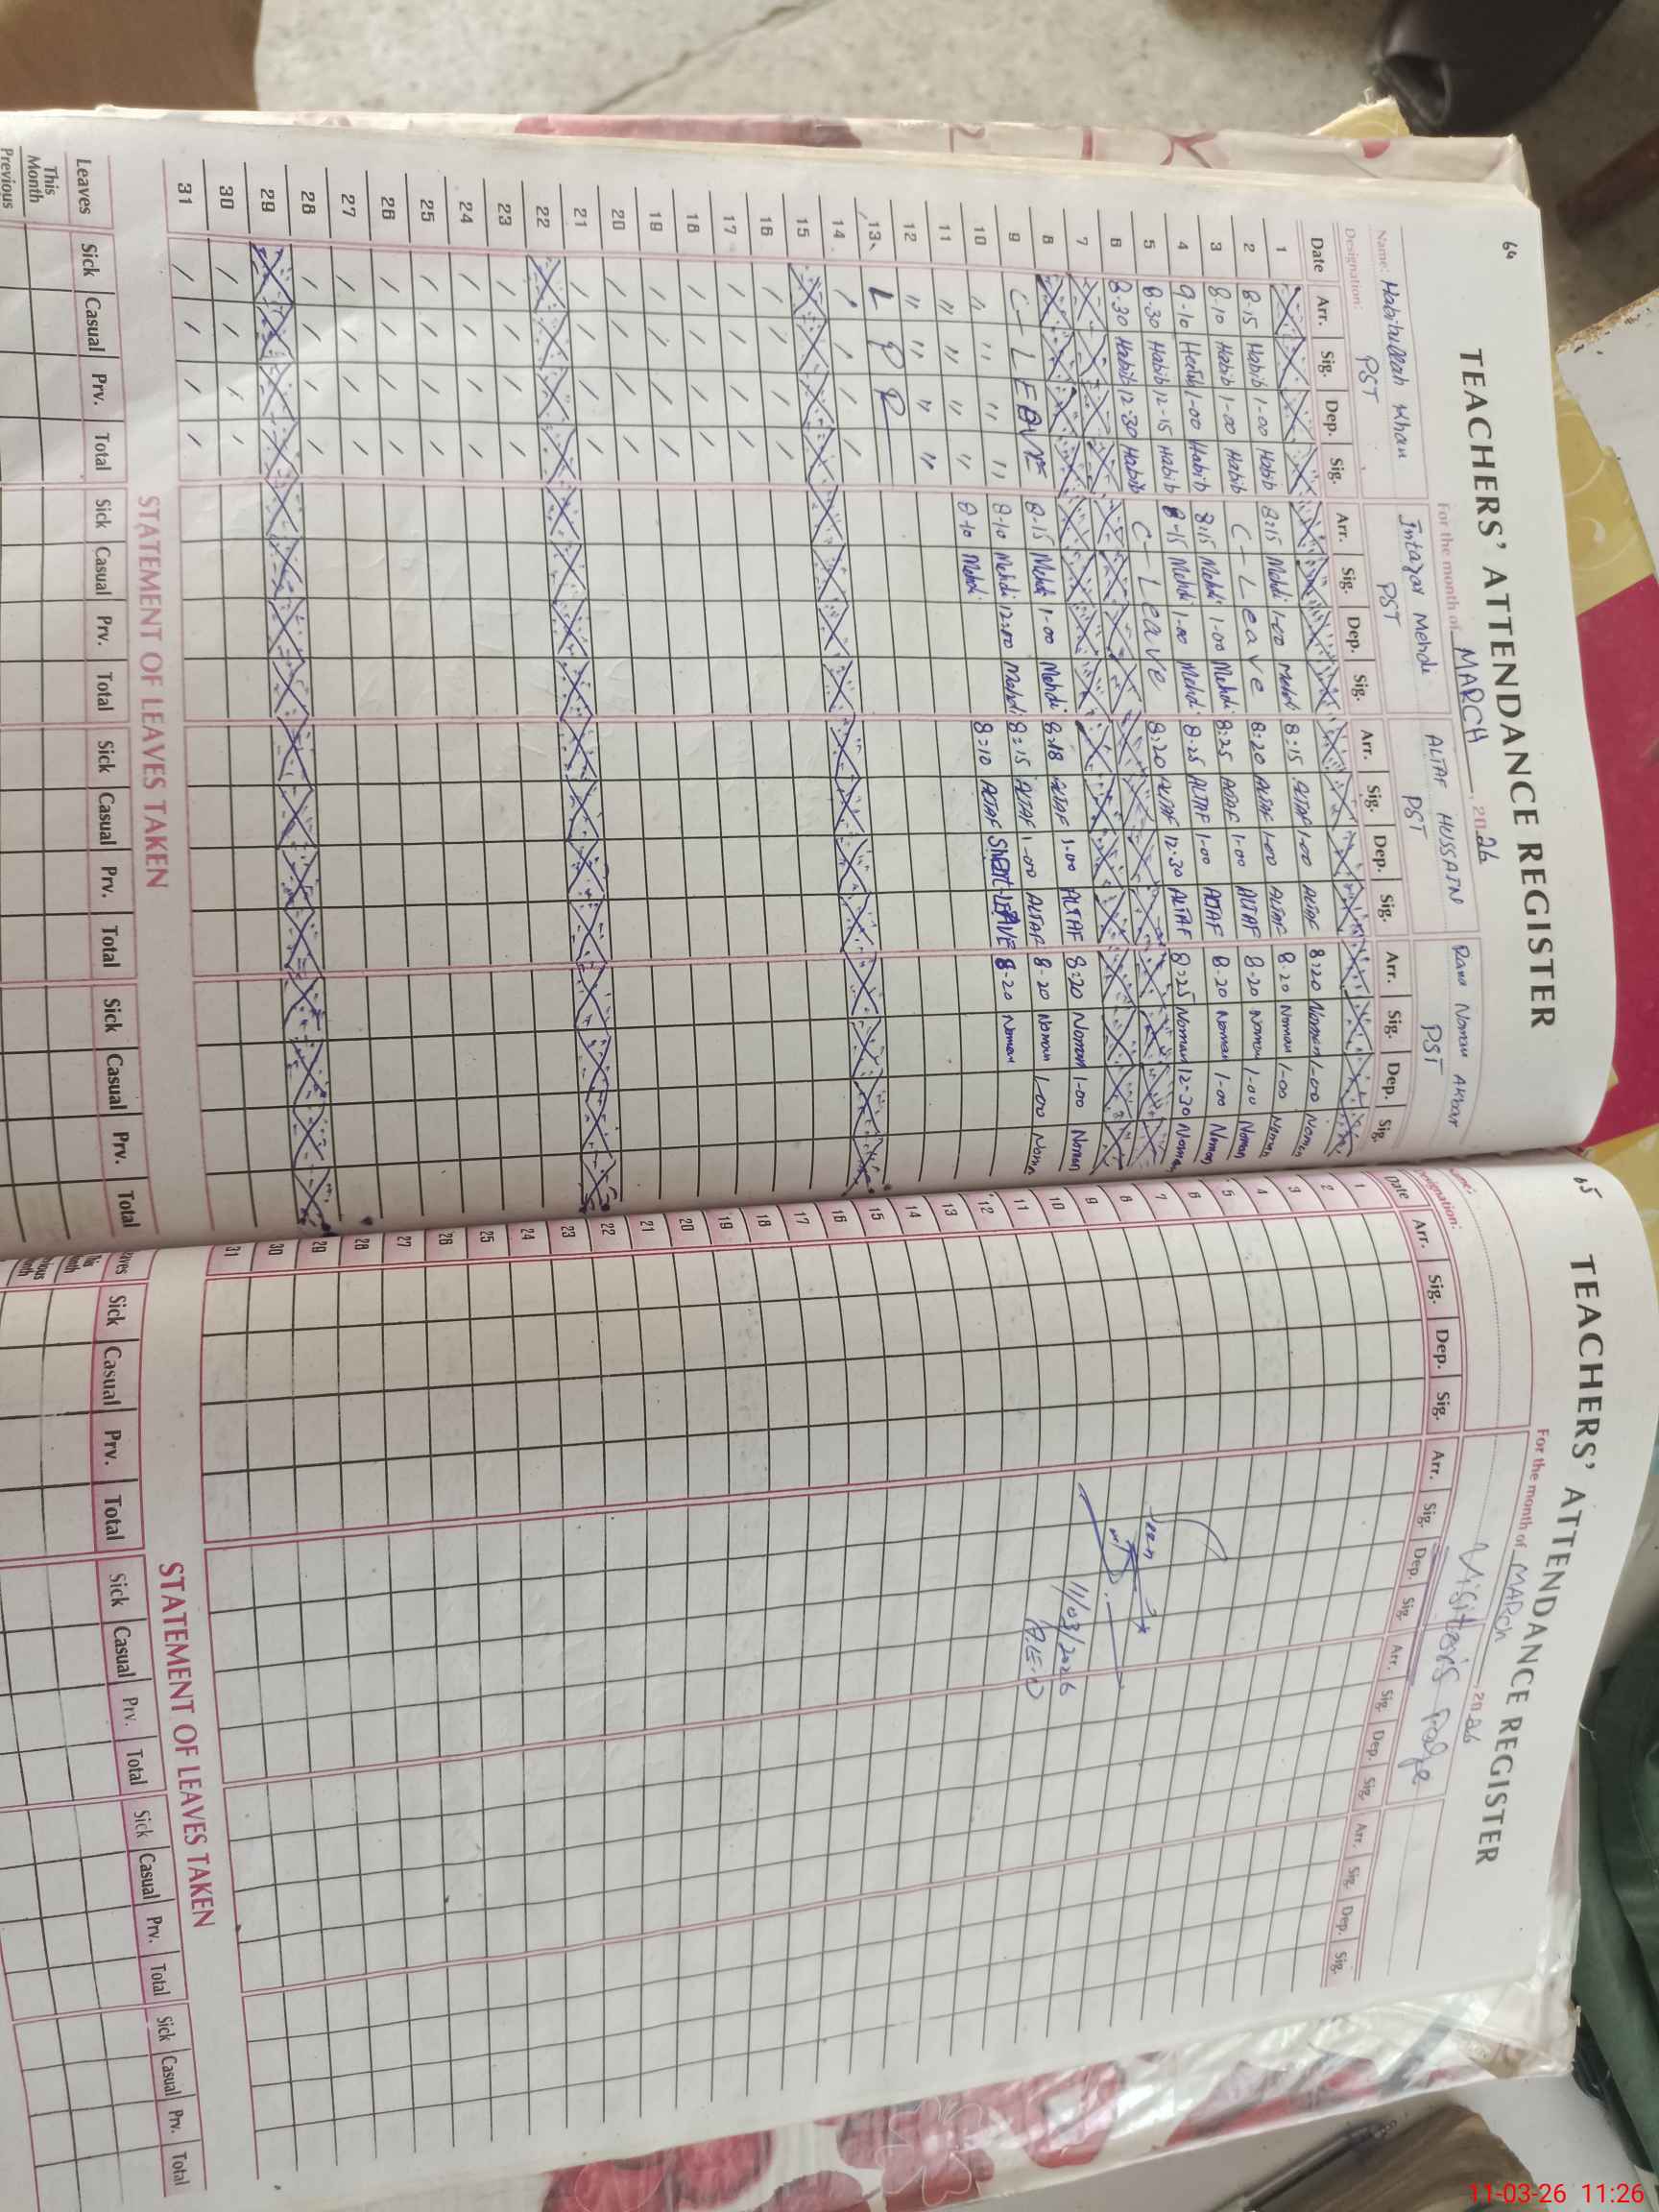 64
TEACHERS' ATTENDANCE REGISTER
For the month of MARCH 2026
Name: Habibullah Khan Intazar Mehdi ALTAF HUSSAIN Rana Noman Akbar
Designation: PST PST PST PST
Date Arr. Sig. Dep. Sig. Arr. Sig. Dep. Sig. Arr. Sig. Dep. Sig. Arr. Sig. Dep. Sig.
1
2 8-15 Habib 1-00 Habib 8:15 Mehdi 1-00 Mehdi 8:15 ALTAF 1-00 ALTAF 8:20 Noman 1-00 Noman
3 8-10 Habib 1-00 Habib C-Leave 8:20 ALTAF 1-00 ALTAF 8.20 Noman 1-00 Noman
4 9-10 Habib 1-00 Habib 8:15 Mehdi 1-00 Mehdi 8:25 ALTAF 1-00 ALTAF 8-20 Noman 1-00 Noman
5 8-30 Habib 12-15 Habib 8-15 Mehdi 1-00 Mehdi 8-25 ALTAF 1-00 ALTAF 8-20 Noman 1-00 Noman
6 8-30 Habib 12-30 Habib C-Leave 8:20 ALTAF 12-30 ALTAF 8:25 Noman 12-30 Noman
7
8
9 C-LEAVE 8-15 Mehdi 1-00 Mehdi 8:18 ALTAF 1-00 ALTAF 8:20 Noman 1-00 Noman
10 " " " " 8-10 Mehdi 12:00 Mehdi 8:15 ALTAF 1-00 ALTAF 8-20 Noman 1-00 Noman
11 " " " " 8-10 Mehdi 8:10 ALTAF Short-LEAVE 8-20 Noman
12 " " " "
13 L P R
14 / / / /
15
16 / / / /
17 / / / /
18 / / / /
19 / / / /
20 / / / /
21 / / / /
22
23 / / / /
24 / / / /
25 / / / /
26 / / / /
27 / / / /
28 / / / /
29
30 / / / /
31 / / / /
STATEMENT OF LEAVES TAKEN
Leaves Sick Casual Prv. Total Sick Casual Prv. Total Sick Casual Prv. Total Sick Casual Prv. Total
This Month
Previous
65
TEACHERS' ATTENDANCE REGISTER
For the month of MARCH 2026
Visitor's Page
Designation:
Date Arr. Sig. Dep. Sig. Arr. Sig. Dep. Sig. Arr. Sig. Dep. Sig. Arr. Sig. Dep. Sig.
1
2
3
4
5
6
7
8
9
10
11
12
13
14
15
16
17
18
19
20
21
22
23
24
25
26
27
28
29
30
31
Seen
11/03/2026
A.E.O
STATEMENT OF LEAVES TAKEN
Sick Casual Prv. Total Sick Casual Prv. Total Sick Casual Prv. Total Sick Casual Prv. Total
11-03-26 11:26